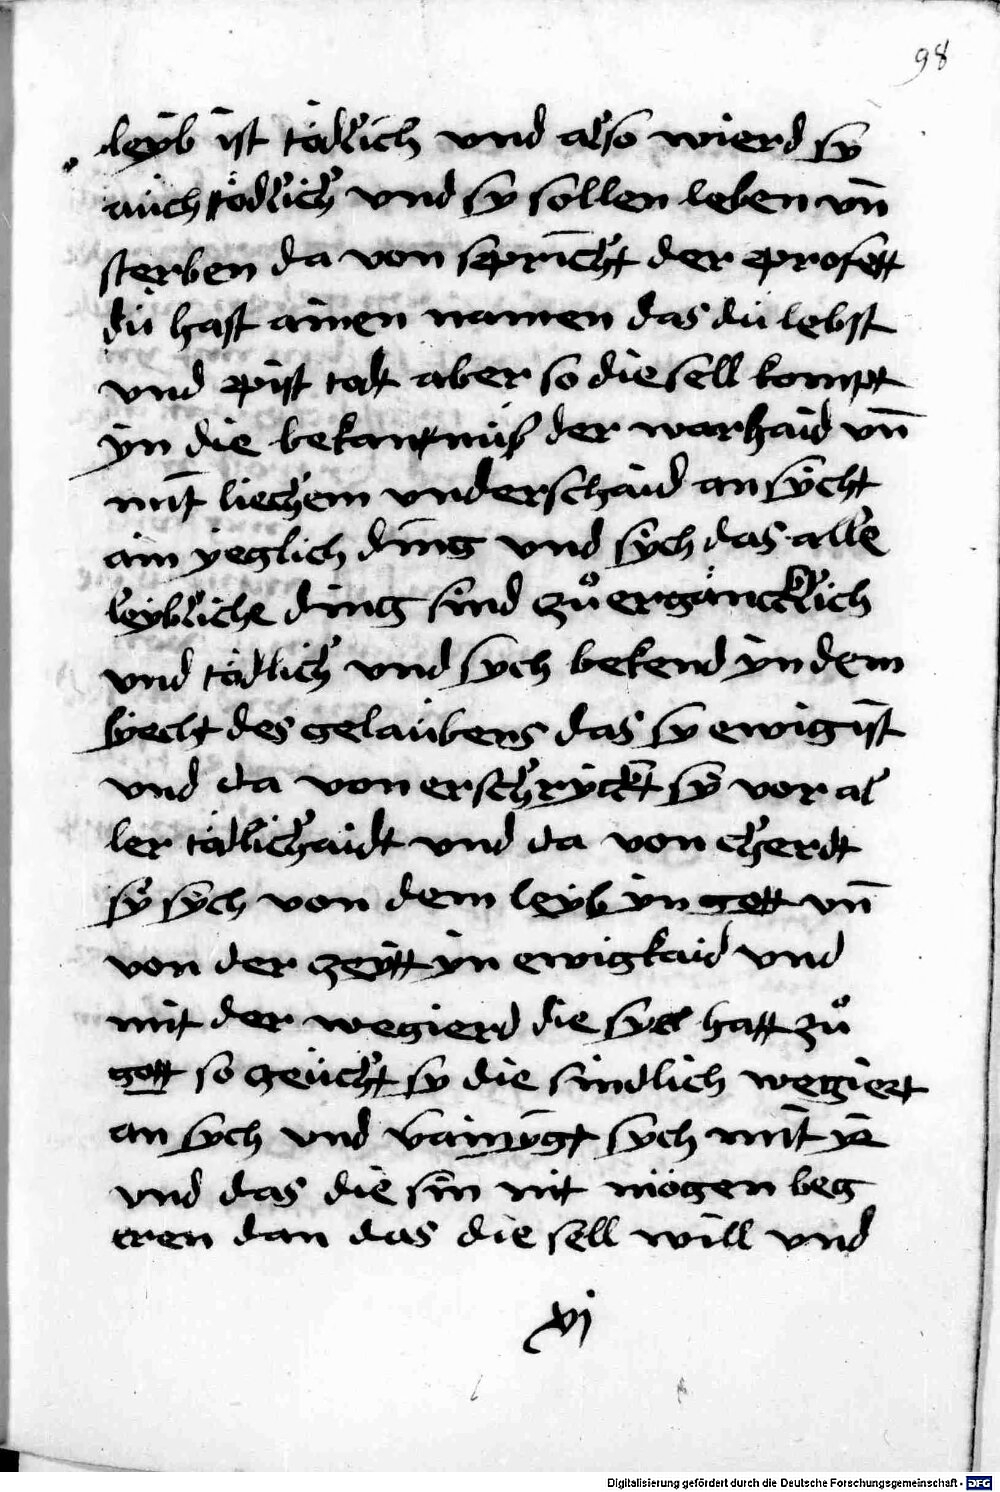 98
leyb ist tödlich vnd also wierd sy
auch tödlich vnd sy sollen leben vn̄
sterben da von spricht der profett
du hast ainen namen das du lebst
vnd pist todt aber so die sell kompt
yn die bekantnüß der warhaid vn̄
mit liechem vnderschaid an sycht
ain yeglich ding vnd sych das alle
leybliche ding sind zuͦ ergäncklich
vnd tödlich vnd sych bekend yn dem
lyecht des gelaubens das sy ewig ist
vnd da von erschryckt sy vor al
ler tödlichaidt vnd da von cherdt
sy sych von dem leyb yn gott vn̄
von der zeytt yn ewigkaid vnd
mit der wegierd die sy hatt zuͦ
gott so zeücht sy die sindlich wegiert
an sych vnd vainygt sych mit yr
vnd das die sin nit mögen beg
eren dan das die sell will vnd
xj
Digitalisierung gefördert durch die Deutsche Forschungsgemeinschaft - DFG